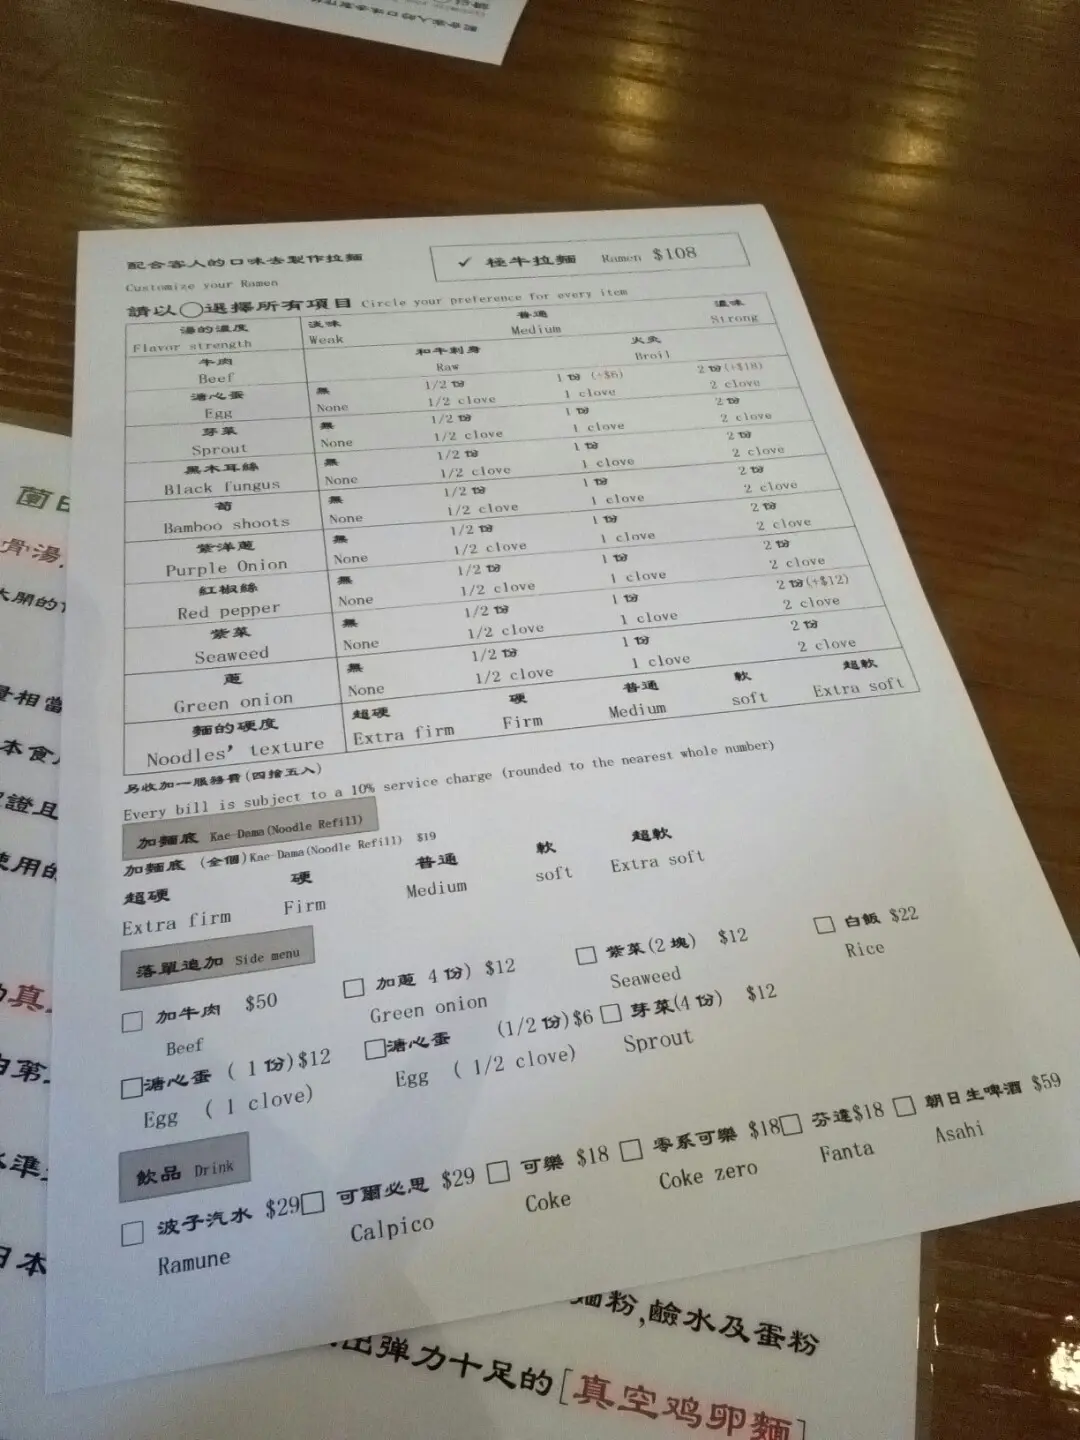 配合客人的口味去製作拉麵
✓ 極牛拉麵 Ramen $108
Customize your Ramen
請以◯選擇所有項目 Circle your preference for every item
湯的濃度 淡味 普通 濃味
Flavor strength Weak Medium Strong
牛肉 和牛刺身 火炙
Beef Raw Broil
溏心蛋 無 1/2份 1份 (+$6) 2份(+$18)
Egg None 1/2 clove 1 clove 2 clove
芽菜 無 1/2份 1份 2份
Sprout None 1/2 clove 1 clove 2 clove
黑木耳絲 無 1/2份 1份 2份
Black fungus None 1/2 clove 1 clove 2 clove
荀 無 1/2份 1份 2份
Bamboo shoots None 1/2 clove 1 clove 2 clove
紫洋蔥 無 1/2份 1份 2份
Purple Onion None 1/2 clove 1 clove 2 clove
紅椒絲 無 1/2份 1份 2份
Red pepper None 1/2 clove 1 clove 2 clove
紫菜 無 1/2份 1份 2份(+$12)
Seaweed None 1/2 clove 1 clove 2 clove
蔥 無 1/2份 1份 2份
Green onion None 1/2 clove 1 clove 2 clove
麵的硬度 超硬 硬 普通 軟 超軟
Noodles' texture Extra firm Firm Medium soft Extra soft
另收加一服務費(四捨五入)
Every bill is subject to a 10% service charge (rounded to the nearest whole number)
加麵底 Kae-Dama(Noodle Refill)
加麵底 (全個)Kae-Dama(Noodle Refill) $19
超硬 硬 普通 軟 超軟
Extra firm Firm Medium soft Extra soft
落單追加 Side menu
加牛肉 $50 加蔥 4份) $12 紫菜(2塊) $12 白飯 $22
Beef Green onion Seaweed Rice
溏心蛋 ( 1份)$12 溏心蛋 (1/2份)$6 芽菜(4份) $12
Egg ( 1 clove) Egg ( 1/2 clove) Sprout
飲品 Drink
波子汽水 $29 可爾必思 $29 可樂 $18 零系可樂 $18 芬達$18 朝日生啤酒 $59
Ramune Calpico Coke Coke zero Fanta Asahi
骨湯
量相當
本食
證且
使用的
真
日本
麵粉,鹼水及蛋粉
出弹力十足的[真空鸡卵麵]